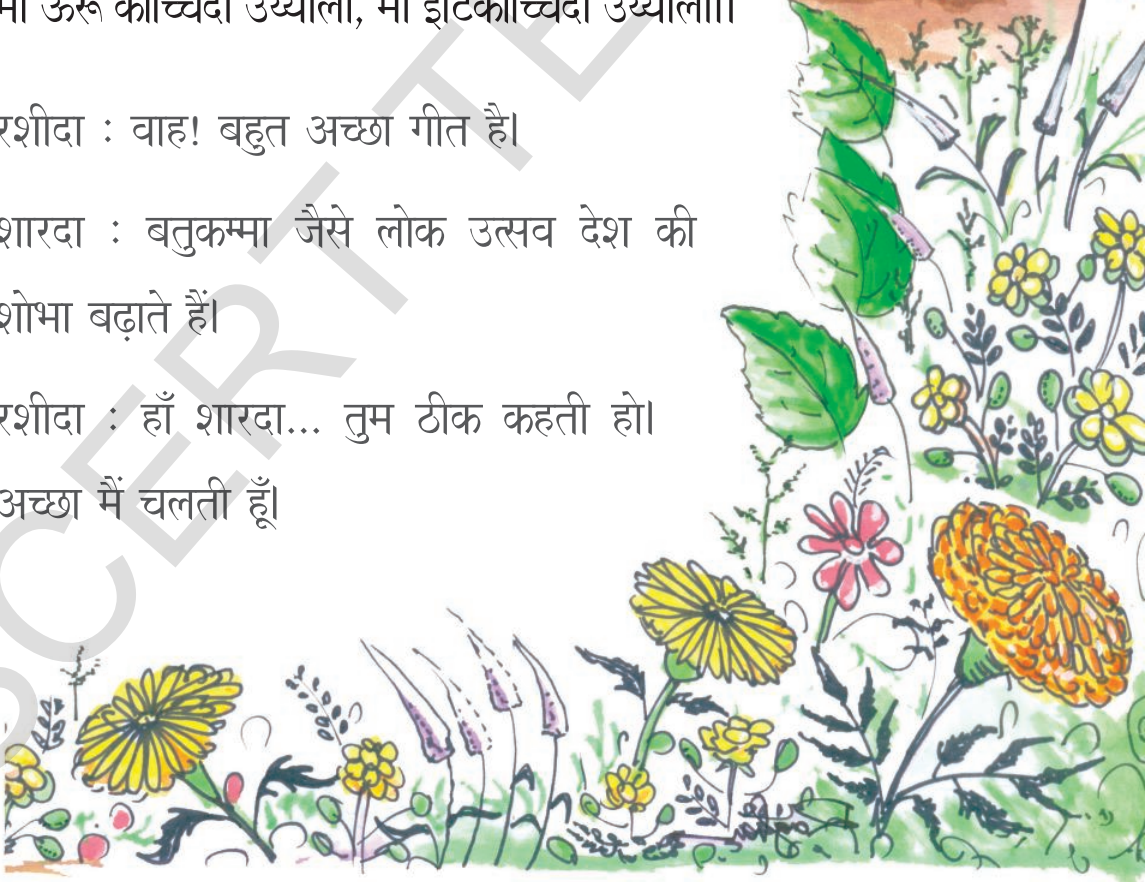 मा ऊरू कोच्चिंदी उय्यालो, मा इंटिकोच्चिंदी उय्यालो।।
रशीदा : वाह! बहुत अच्छा गीत है।
शारदा : बतुकम्मा जैसे लोक उत्सव देश की
शोभा बढ़ाते हैं।
रशीदा : हाँ शारदा... तुम ठीक कहती हो।
अच्छा मैं चलती हूँ।
SCERT TE